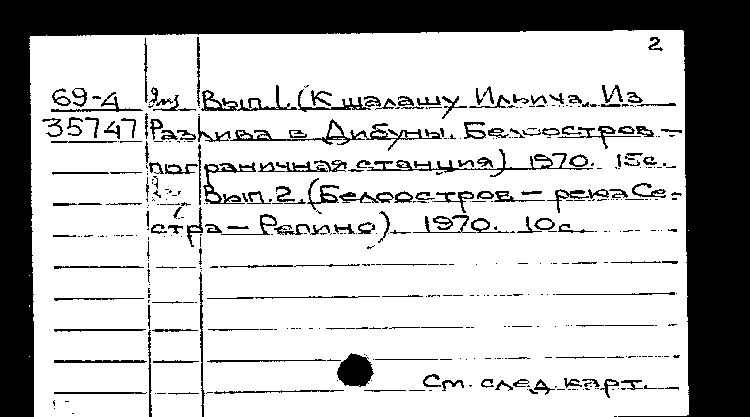 2
69-4 Вып.1.(К шалашу Ильича. Из
35747 Разлива в Дибуны. Белоостров -
пограничная станция) 1970. 15с.
Вып.2.(Белоостров - река Се-
стра - Репино). 1970. 10с.
См. след. карт.